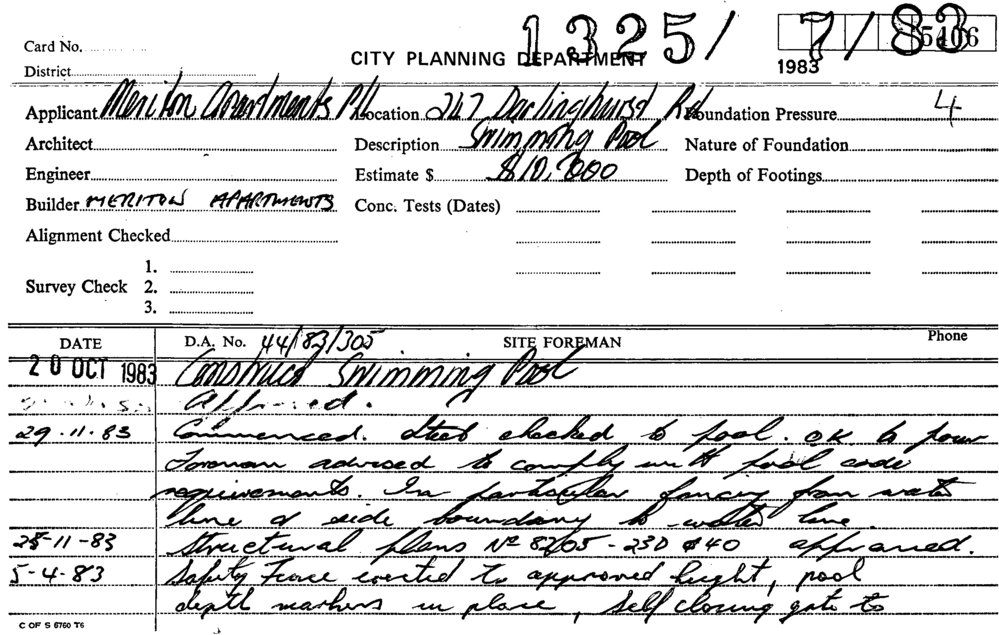 1325/ 7/83
5406
Card No.
CITY PLANNING DEPARTMENT
1983
District
Applicant Meriton Apartments P/L Location 247 Darlinghurst Rd Foundation Pressure 4
Architect Description Swimming Pool Nature of Foundation
Engineer Estimate $ $10,000 Depth of Footings
Builder MERITON APARTMENTS Conc. Tests (Dates)
Alignment Checked
1.
Survey Check 2.
3.
DATE D.A. No. 44/83/305 SITE FOREMAN Phone
20 OCT 1983 Construct Swimming Pool
Approved.
29-11-83 Commenced. Steel checked to pool. OK to pour
Foreman advised to comply with pool code
requirements. In particular fencing from water
line of side boundary to water line.
28-11-83 Structural plans No 8205-23D & 40 approved.
5-4-83 Safety Fence erected to approved height, pool
depth markers in place, self closing gate to
C OF S 6760 T6